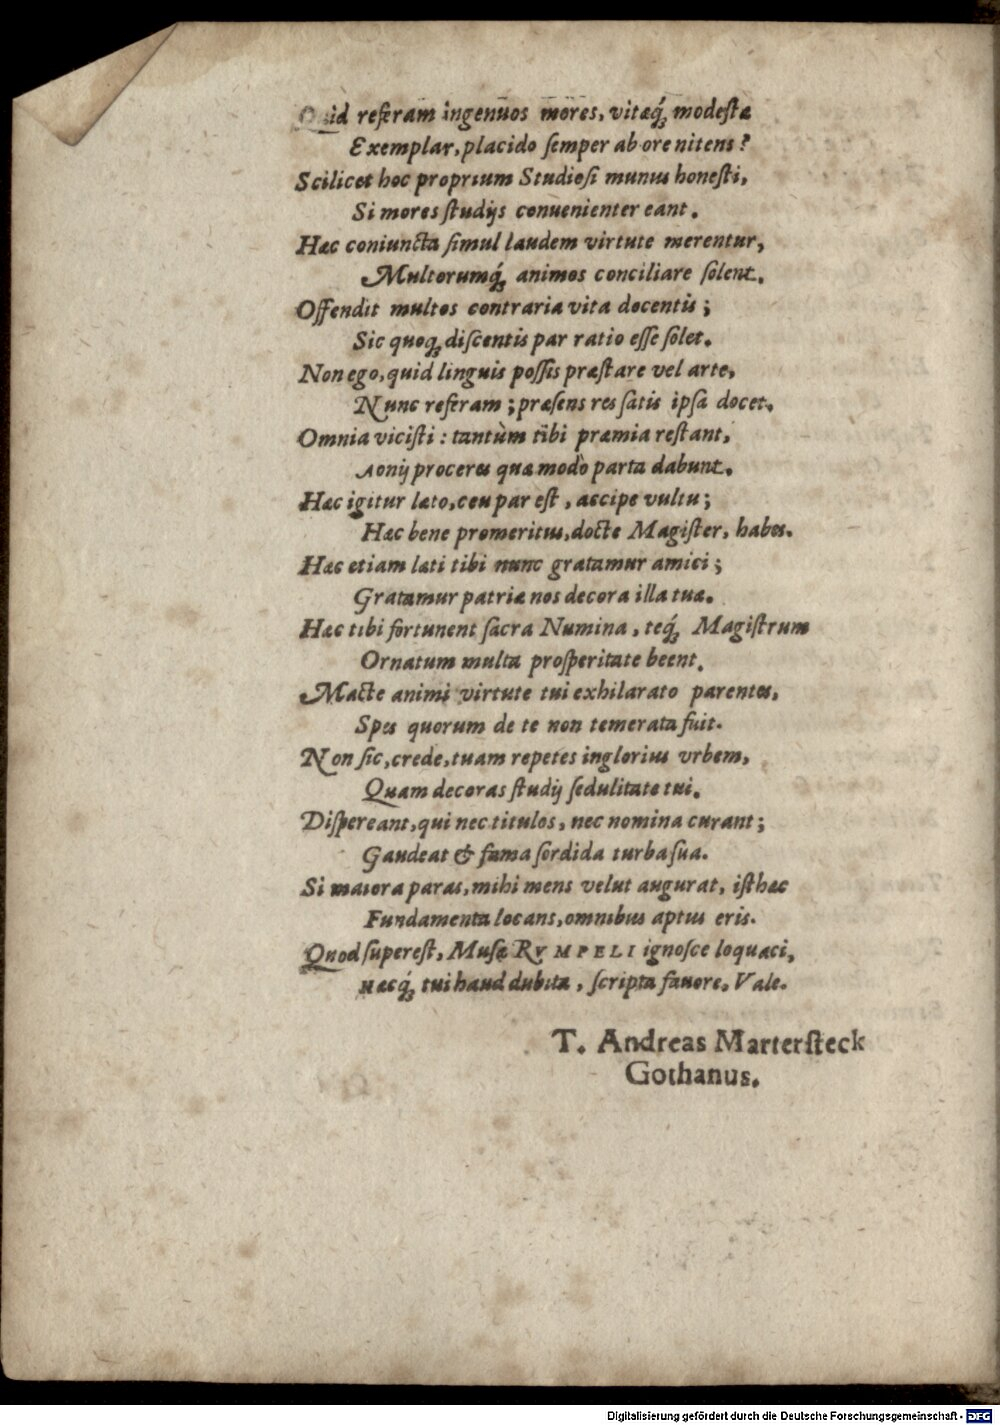 Quid referam ingenuos mores, vitæq́; modestæ
Exemplar, placido semper ab ore nitens?
Scilicet hoc proprium Studiosi munus honesti,
Si mores studijs conuenienter eant.
Hæc coniuncta simul laudem virtute merentur,
Multorumq́; animos conciliare solent.
Offendit multos contraria vita docentis;
Sic quoq; discentis par ratio esse solet.
Non ego, quid linguis possis præstare vel arte,
Nunc referam; præsens res satis ipsa docet.
Omnia vicisti: tantùm tibi præmia restant,
Aonij proceres quæ modò parta dabunt.
Hæc igitur læto, ceu par est, accipe vultu;
Hæc bene promeritus, docte Magister, habes.
Hæc etiam læti tibi nunc gratamur amici;
Gratamur patriæ nos decora illa tuæ.
Hæc tibi fortunent sacra Numina, teq́; Magistrum
Ornatum multa prosperitate beent.
Macte animi virtute tui exhilarato parentes,
Spes quorum de te non temerata fuit.
Non sic, crede, tuam repetes inglorius vrbem,
Quam decoras studij sedulitate tui.
Dispereant, qui nec titulos, nec nomina curant;
Gaudeat & fama sordida turba sua.
Si maiora paras, mihi mens velut augurat, isthæc
Fundamenta locans, omnibus aptus eris.
Quod superest, Musæ RVMPELI ignosce loquaci,
Hæcq́; tui haud dubita, scripta fauore. Vale.
T. Andreas Martersteck
Gothanus.
Digitalisierung gefördert durch die Deutsche Forschungsgemeinschaft - DFG